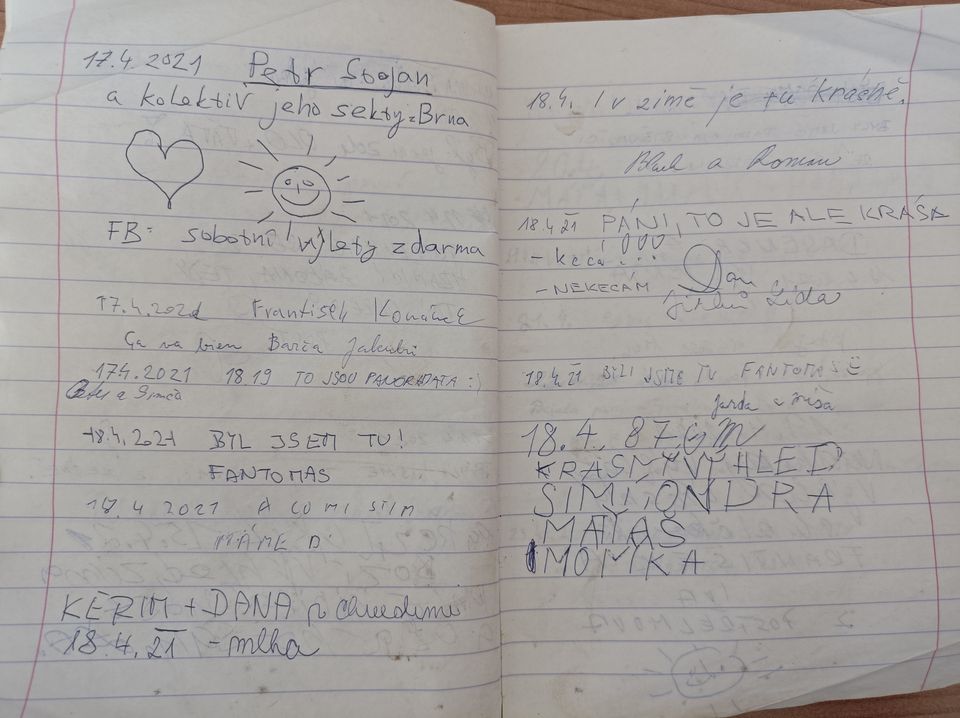 17.4.2021 Petr Stojan
a kolektiv jeho sekty z Brna
FB: sobotní výlety zdarma
17.4.2021 František
Ça va bien Barča
17.4.2021 18.19 TO JSOU PANORÁMATA :)
a Simča
18.4.2021 BYL JSEM TU!
FANTOMAS
18.4 2021 A CO MI S TÍM
MÁME D
KERIM + DANA
18.4.21 - mlha
18.4. I v zimě je tu krásně.
a Roman
18.4.21 PÁNI, TO JE ALE KRÁSA
- kecá!!!
- NEKECÁM
Dan
Lída
18.4.21 BYLI JSME TU FANTOMAS
Jarda a Míša
18.4.
KRÁSNÝ VÝHLED
SIMI, ONDRA
MAŤAŠ
MONIKA